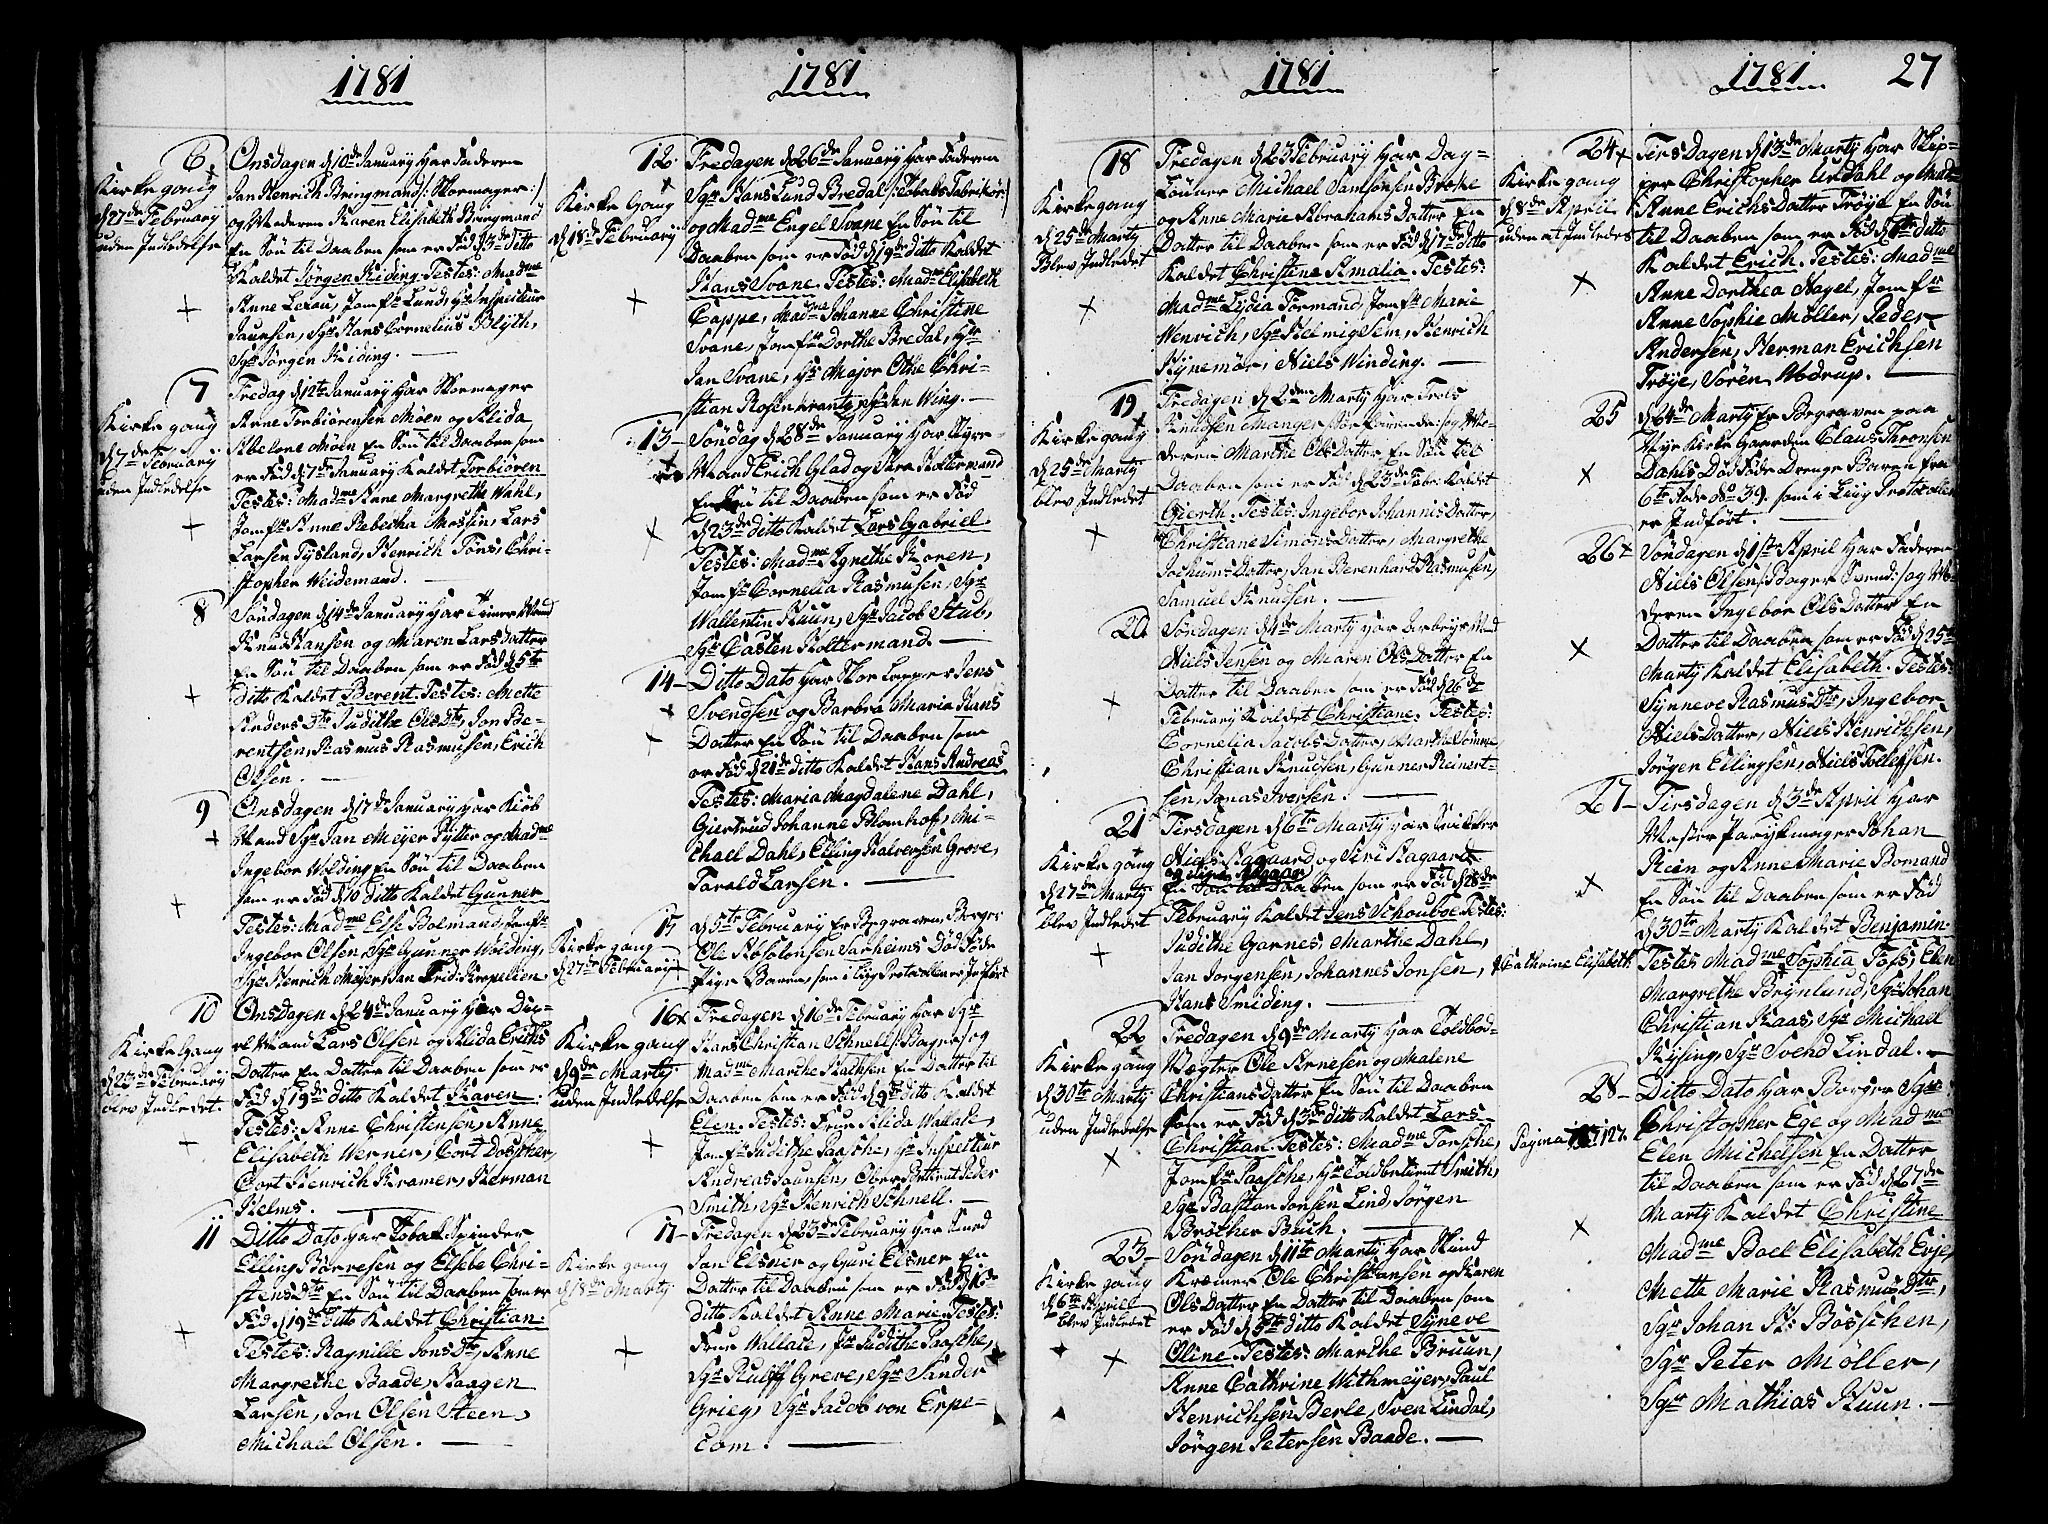 1781
6
Kirke gang
d 27de February
uden Indledelse
Onsdagen d 10de January har Faderen
Jan Henrich Bringmand /: Skomager :/
og Moderen Karen Elisabeth Bringmand
En Søn til Daaben som er Fød d ditto
Kaldet Jørgen Kiding. Testes: Madme
Anne Lexau, Jomfr Lund, Hr Inspecteur
Jaunsen, Sgr Hans Cornelius Blÿth,
Sgr Jørgen Kiding.
7
Kirke gang
d 7de February
uden Indledelse
Fredag d 12te January har Skomager
Arne Torbiørensen Møen og Alida
Abelone Møen En Søn til Daaben som
er Fød d 7de January Kaldet Torbiøren
Testes: Madme Anne Margrethe Wahl,
Jomfr Anne Rebecha Mossin, Lars
Larsen Tysland, Henrich Töns, Chri-
stopher Weidemand.
8
Søndagen d 14de January har Timermand
Knud Hansen og Maren Larsdatter
En Søn til Daaben som er Fød d 5te
Ditto Kaldet Berent. Testes: Mette
Andersdtr Judithe Olsdtr, Jon Be-
rentsen, Rasmus Rasmusen, Erich
Olsen.
9
Onsdagen d 17de January har Kiøb
Mand Sgr Jan Meÿer Fÿtter og Madme
Ingebor Wolding En Søn til Daaben
som er Fød d 10 ditto Kaldet Gunner
Testes: Madme Else Bolmand, Jomfr
Ingebor Olsen, Sgr Gunner Wolding,
Sgr Henrich Meÿer, Jan Frid: Krepelien
10
Kirke Gang
d 23de February
blev Indledet.
Onsdagen d 24de January har
Mand Lars Olsen og Alida Erichs
Datter En Datter til Daaben som er
Fød d 19de ditto Kaldet Karen:
Testes: Anne Christensen, Anne
Elisabeth Werner, Cort Døscher,
Cort Henrich Kramer, Herman
Helms.
11
Ditto Dato har Tobak Spinder
Elling Børresen og Elsebe Chri-
stensdtr En Søn til Daaben som er
Fød d 19de ditto Kaldet Christian.
Testes: Ragnille Jonsdtr, Anne
Margrethe Baade, Haagen
Larsen, Jon Olsen Steen,
Michael Olsen.
1781
12
Kirke Gang
d 18de February
Fredagen d 26de January har Faderen
Sgr Hans Lund Bredal /: Tobaks Fabrikør :/
og Madme Engel Svane En Søn til
Daaben som er Fød d 19de ditto Kaldet
Hans Svane. Testes: Madme Elisabeth
Cappe, Madme Johanne Christine
Svane, Jomfr Dorthe Bredal, Hr
Jan Svane, Hr Major Othe Chri-
stian Rosenkrantz, Jan Wing.
13
Søndag d 28de January har Styre-
Mand Erich Glad og Sara Holtermand
En Søn til Daaben som er Fød
d 23de ditto Kaldet Lars Gabriel
Testes: Madme Agnethe Koren,
Jomfr Cornelia Rasmusen, Sgr
Wallentin Kuun, Sgr Jacob Stub,
Sgr Casten Holtermand
14
Ditto Dato har Skoe Lapper Jens
Svendsen og Barbra Maria Hans
Datter En Søn til Daaben som
er Fød d 21de ditto Kaldet Hans Andreas
Testes: Maria Magdalene Dahl,
Giertrud Johanne Blomhof, Mi-
chael Dahl, Elling Halversen Greve,
Tarald Larsen.
15
Kirke gang
d 27de February
d 5te February Er Begraven Borger
Ole Absolonsen Sarheims Død Føde
Pige Baren, som i Liig Protocollen er Indført
16
Kirke gang
d 9de Marty
uden Indledelse
Fredagen d 16de February har Sgr
Hans Christian Schnell /: Bager :/ og
Madme Marthe Kathsen En Datter til
Daaben som er Fød d 9de ditto Kaldet
Elen. Testes: Frue Alida Wallace,
Jomfr Judithe Paasche, Hr Inspecteur
Andreas Jaunsen, Peder
Smith, Sgr Henrich Schnell.
17
Kirke gang
d 18de Marty
Fredagen d 23de February har Smed
Jan Elsner og Guri Elsner En
Datter til Daaben som er Fød d 16de
ditto Kaldet Anne Marie. Testes:
Frue Wallace, Jfr Judithe Paasche,
Sgr Rulff Greve, Sgr Sander
Grieg, Sgr Jacob von Erpe-
com.
1781
18
Kirke gang
d 25de Marty
Blev Indledet
Fredagen d 23 February har Dag-
Lønner Michael Samsonsen Broke
og Anne Marie Abrahams Datter En
Datter til Daaben som er Fød d 17de ditto
Kaldet Christine Amalia. Testes:
Madme Lydia Formand, Jomfr Marie
Wenrich, Sgr Helmig Sem, Henrich
Hÿnemør, Niels Winding.
19
Kirke gang
d 25de Marty
blev Indledet
Fredagen d 2den Marty har Troels
Knudsen Manger Søefarende og Mo-
deren Marthe Olsdatter En Søn til
Daaben som er Fød d 23de Febr: Kaldet
Gierth. Testes: Ingebor Johannis Datter,
Christiane Simons Datter, Margrethe
Jochums Datter, Jan Berenhard Rasmusen,
Samuel Knudsen.
20
Søndagen d 4de Marty har Arbeÿds Mand
Niels Jensen og Maren Olsdatter En
Datter til Daaben som er Fød d 26de
February Kaldet Christiane. Testes:
Cornelia Jacobsdatter, Marthe Sømme
Christian Knudsen, Gunner Reinert-
sen, Jonas Iversen.
21
Kirke gang
d 17de Marty
blev Indledet
Tirsdagen d 6te Marty har Snidker
Niels Aagaard og Siri Aagaard
En Søn til Daaben som er Fød d 28de
February Kaldet Jens Schouboe Testes:
Judithe Garnes, Marthe Dahl,
Jan Jørgensen, Johannes Jonsen,
Hans Smiding.
22
Kirke gang
d 30te Marty
uden Indledelse
Fredagen d 9de Marty har Toldbod-
Vægter Ole Arnesen og Malene
Christiansdatter En Søn til Daaben
som er Fød d 3de ditto Kaldet Lars
Christian. Testes: Madme Torsche,
Jomfr Paasche, Hr Toldbetient Smith,
Sgr Bastian Jonsen Lind, Jørgen
Brøther Buch.
23
Kirke gang
d 6te Apriel
blev Indledet
Søndagen d 11te Marty har Hund
Kræmer Ole Christiansen og Karen
Olsdatter En Datter til Daaben som
er Fød d 5te ditto Kaldet Sÿneve
Oline. Testes: Marthe Bruun,
Anne Cathrine Withmeÿer, Paul
Henrichsen Berle, Sven Lindal,
Jørgen Petersen Baade.
1781
27
24
Kirke gang
d 8de April
uden at Indledes
Tirsdagen d 13de Marty har Skip-
per Christopher Urdahl og Madme
Anne Erichs Datter Trøye En Søn
til Daaben som er Fød d ditto
Kaldet Erich. Testes: Madme
Anne Dorthea Nagel, Jomfr
Anne Sophie Møller, Peder
Andersen, Herman Erichsen
Trøye, Søren Abdrup.
25
d 24de Marty Er Begraven paa
Nye Kirke Gaarden Claus Thronsen
Dahls Død Føde Drenge Baren fra
6te Rode No 39. som i Liig Protocollen
er Indført.
26
Søndagen d 1ste April har Faderen
Niels Olsen /: Bager Svend :/ og Mo-
deren Ingebor Olsdatter En
Datter til Daaben som er Fød d 25te
Marty Kaldet Elisabeth. Testes:
Synneve Rasmusdtr, Ingebor
Niels Datter, Niels Henrichsen,
Jørgen Ellingsen, Niels Tollefsen.
27
Tirsdagen d 3de April har
Mester Parÿkmager Johan
Rein og Anne Marie Bomand
En Søn til Daaben som er Fød
d 30te Marty Kaldet Benjamin.
Testes Madme Sophia Foss, Elen
Margrethe Brÿnlund, Sgr Johan
Christian Kaas, Sgr Michael
Rÿsing, Sgr Svend Lindal.
Cathrine Elisabeth
Pagina 127.
28
Ditto Dato har Borger Sgr
Christopher Ege og Madme
Elen Michelsen En Datter
til Daaben som er Fød d 27de
Marty Kaldet Christine
Madme Boel Elisabeth Erje,
Mette Marie Rasmusdtr,
Sgr Johan Fr: Bøschen,
Sgr Peter Møller,
Sgr Mathias Kuun.